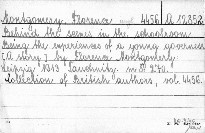 Montgomery, Florence 4456 A 19.252
Behind the scenes in the schoolroom
Being the experiences of a young governess
(A story) by Florence Montgomery
Leipzig 1913 Tauchnitz. 270.
Collection of British authors, vol. 4456.